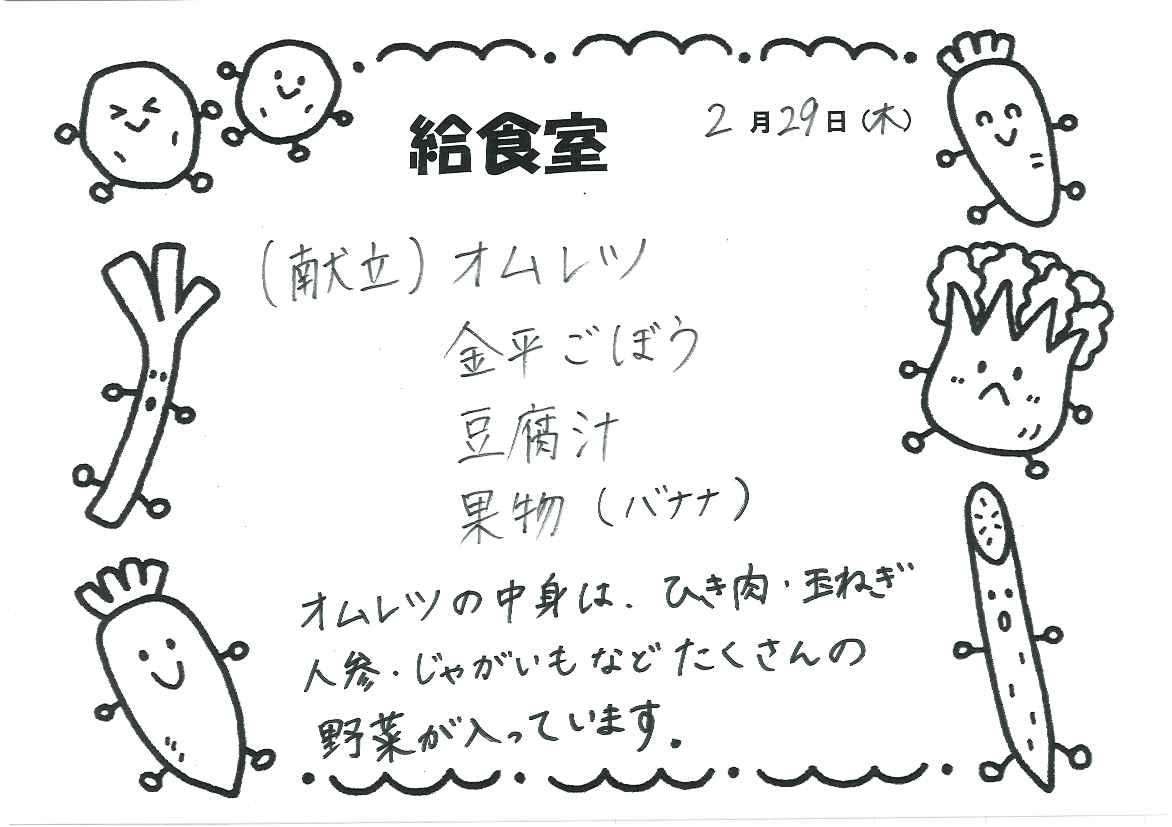 給食室
2月29日(木)
(献立)オムレツ
金平ごぼう
豆腐汁
果物(バナナ)
オムレツの中身は、ひき肉・玉ねぎ
人参・じゃがいもなどたくさんの
野菜が入っています。